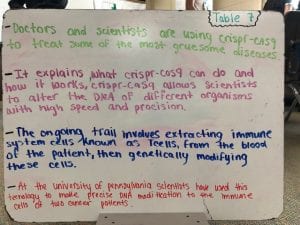 Table 7
- Doctors and scientists are using crispr-cas9
to treat some of the most gruesome diseases
- It explains what crispr-cas9 can do and
how it works, crispr-cas9 allows scientists
to alter the DNA of different organisms
with high speed and precision.
- The ongoing trail involves extracting immune
system cells known as Tcells, from the blood
of the patient, then genetically modifying
these cells.
- At the university of pennsylvania scientists have used this
tecnology to make precise DNA modification to the immune
cells of two cancer patients.